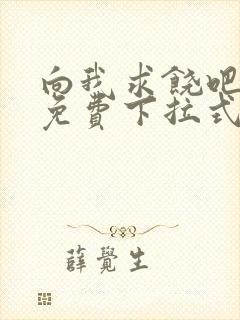 向我求饒吧
免費下拉式
薛覺生